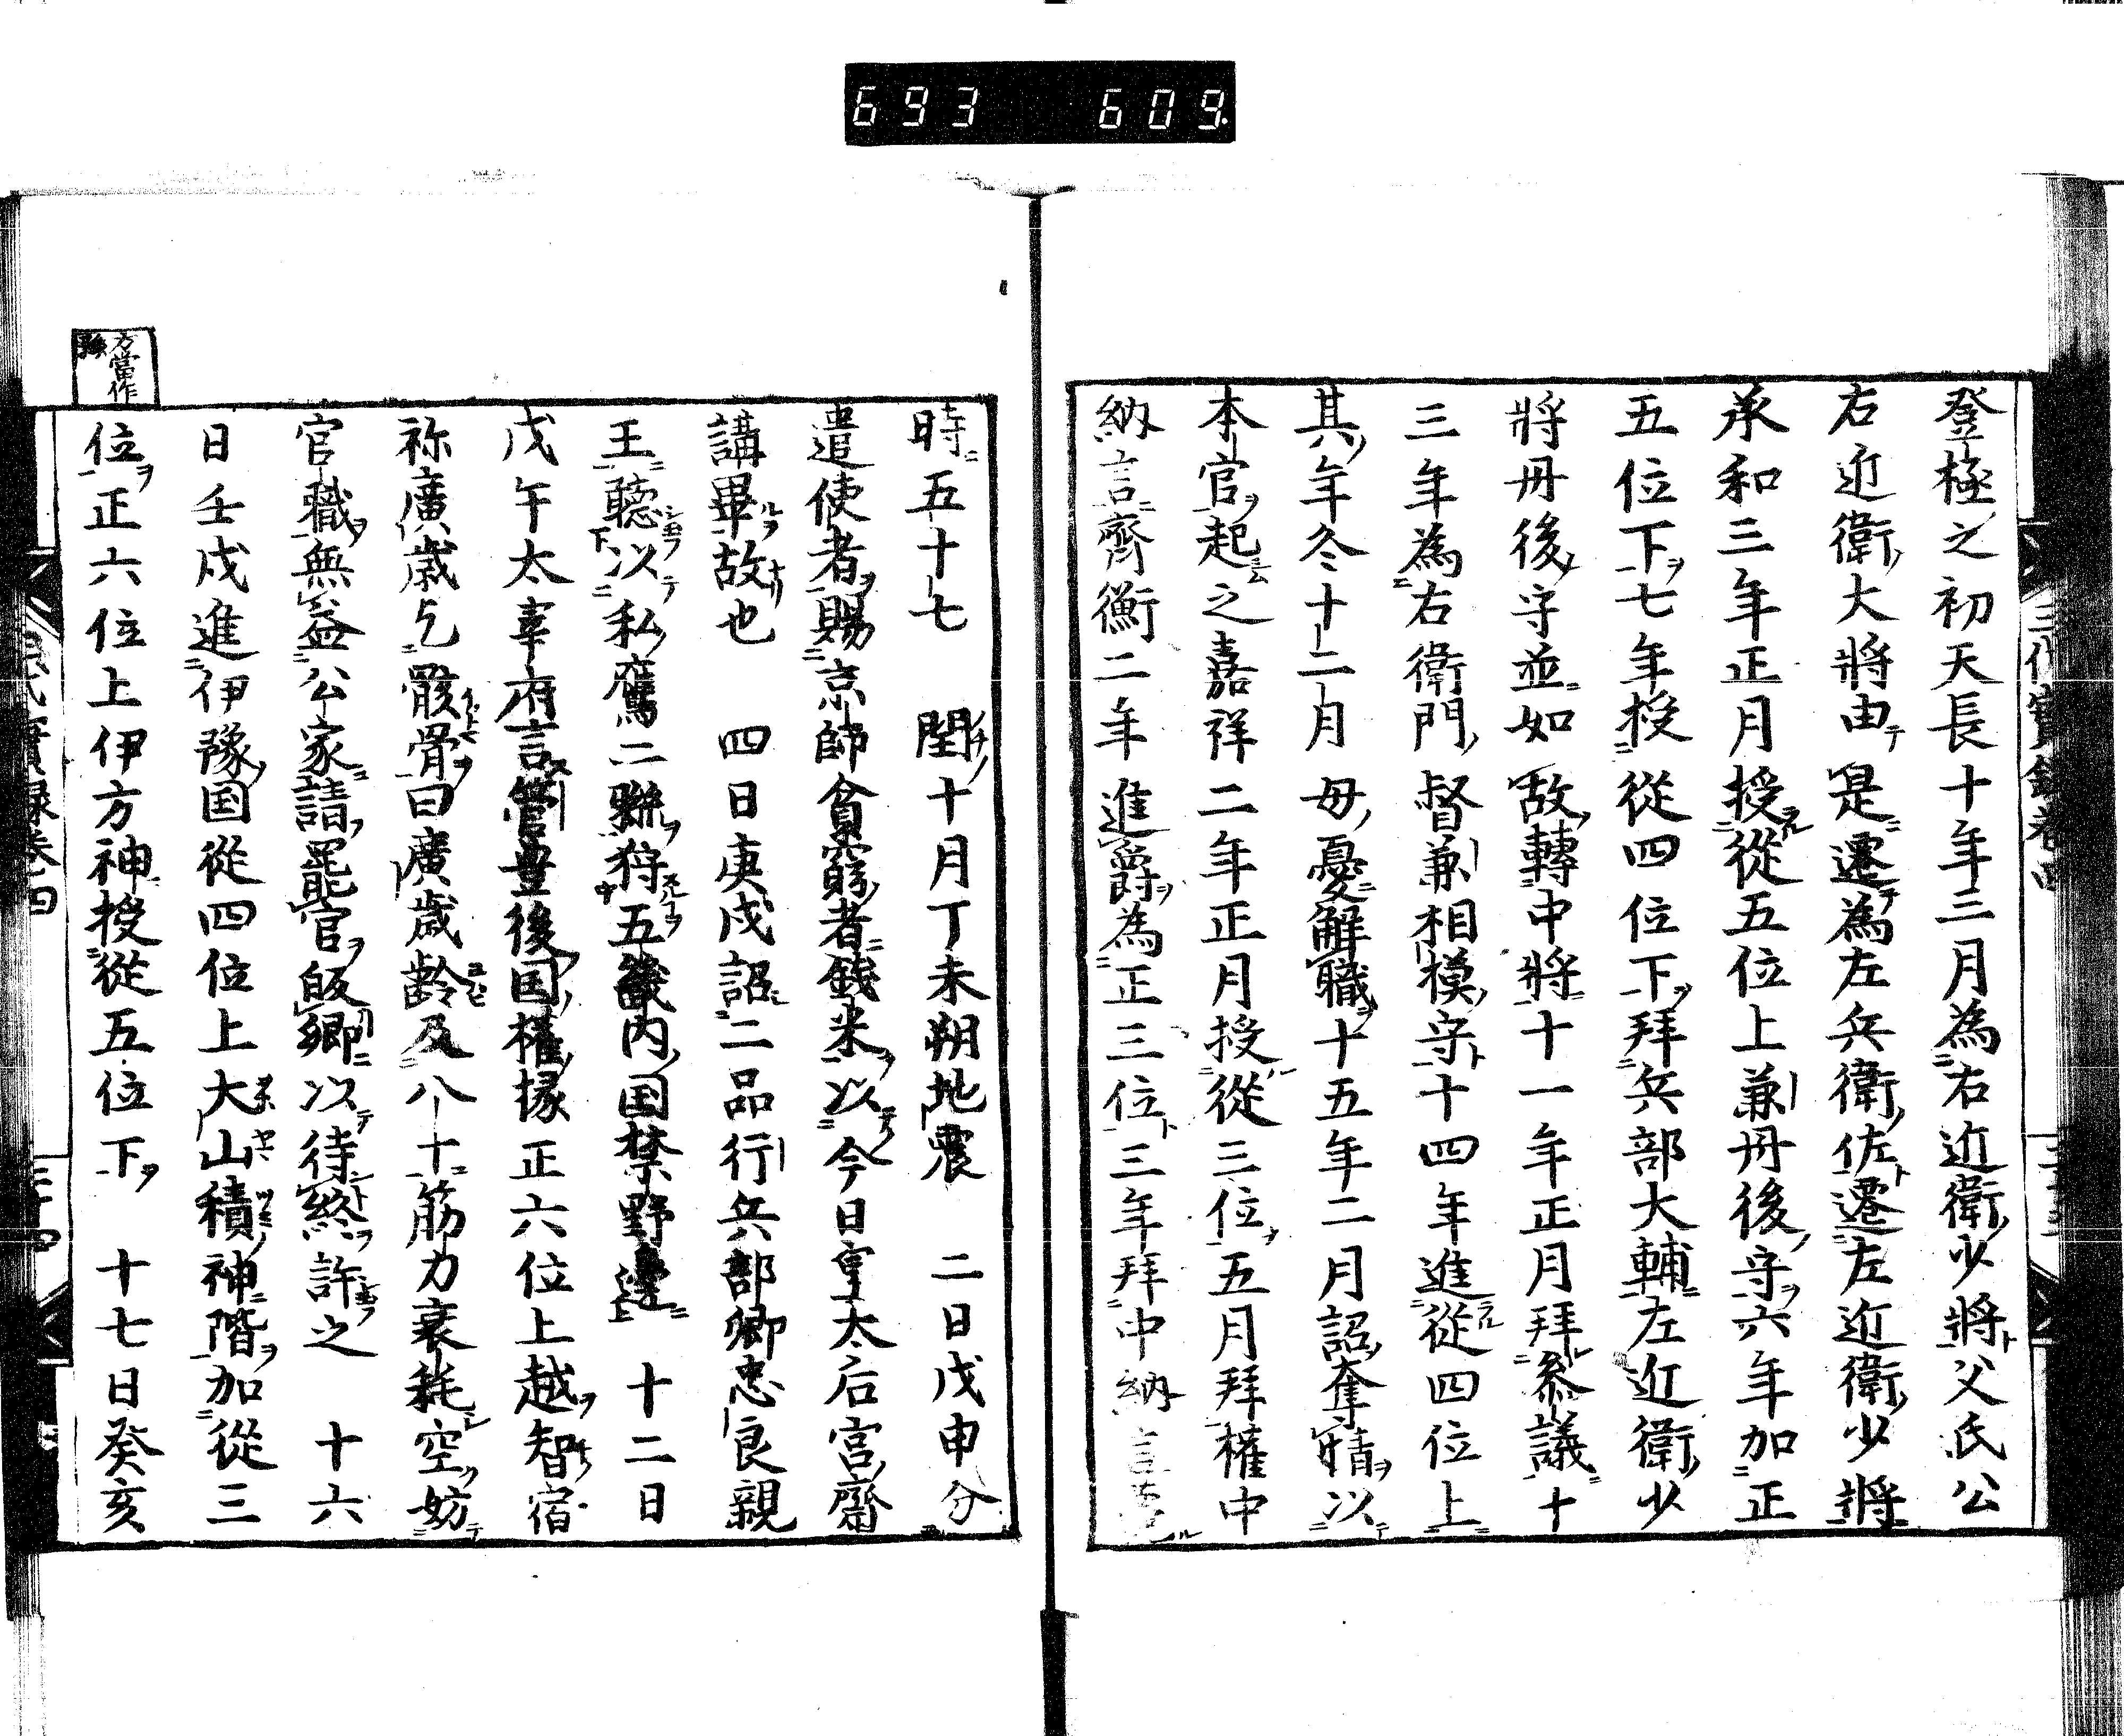 693 609.
登極之初天長十年三月為右近衛少將父氏公
右近衛大將由是遷為左兵衛佐遷左近衛少將
承和三年正月授從五位上兼丹後守六年加正
五位下七年授從四位下拜兵部大輔左近衛少
將丹後守並如故轉中將十一年正月拜參議十
三年為右衛門督兼相模守十四年進從四位上
其年冬十二月毋憂解職十五年二月詔奪情以
本官起之嘉祥二年正月授從三位五月拜權中
納言齊衡二年進爵為正三位三年拜中納言
時五十七 閏十月丁未朔地震 二日戊申分
遣使者賜京師貧窮者錢米以今日皇太后宮齋
講畢故也 四日庚戌詔二品行兵部卿忠良親
王聽以私鷹二聯狩五畿内国禁野邊 十二日
戊午太宰府言管豊後国權掾正六位上越智宿
祢廣歲乞骸骨曰廣歲齡及八十筋力衰耗空妨
官職無益公家請罷官皈鄉以待終許之 十六
日壬戌進伊豫国從四位上大山積神階加從三
位正六位上伊方神授從五位下 十七日癸亥
方當作
三代實錄卷四